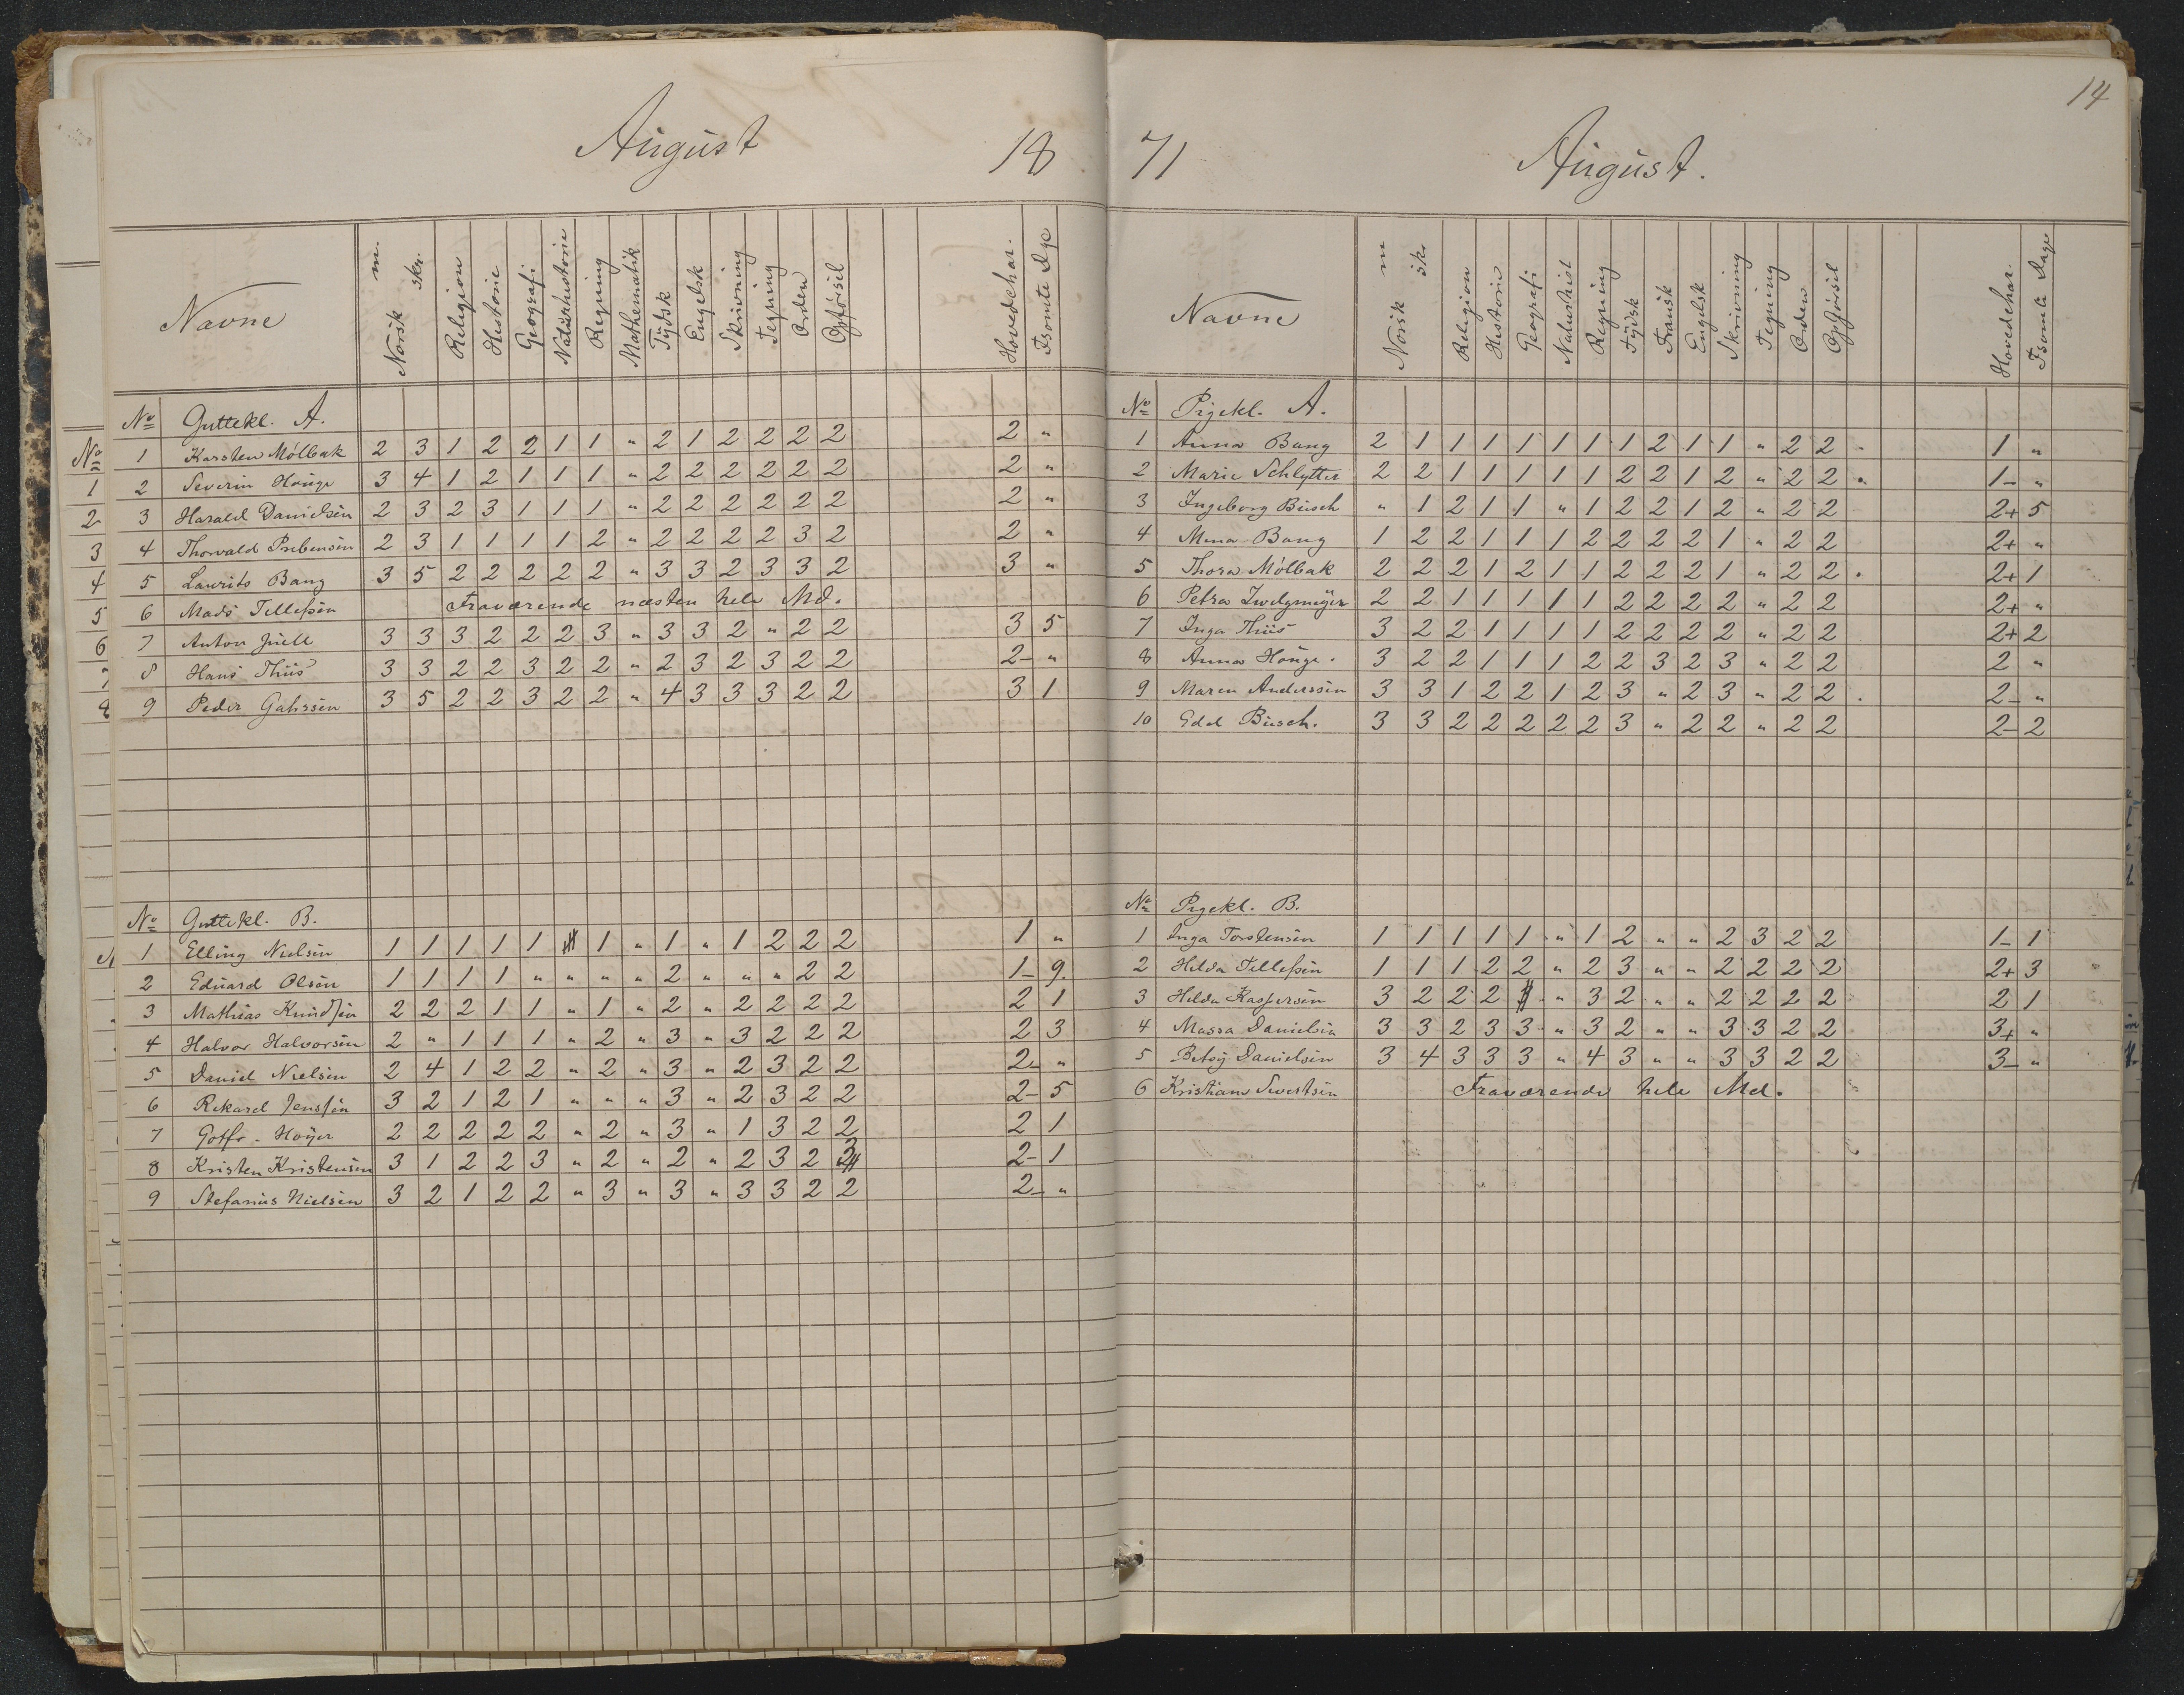 August 18
Navne Norsk m. skr. Religion Historie Geografi Naturhistorie Regning Mathematik Tydsk Engelsk Skrivning Tegning Orden Opførsel Hovedchar. Fsomte Dge
No Guttekl. A.
1 Karsten Mølbak 2 3 1 2 2 1 1 " 2 1 2 2 2 2 2 "
2 Severin Houge 3 4 1 2 1 1 1 " 2 2 2 2 2 2 2 "
3 Harald Danielsen 2 3 2 3 1 1 1 " 2 2 2 2 2 2 2 "
4 Thorvald Prebensen 2 3 1 1 1 1 2 " 2 2 2 2 3 2 2 "
5 Laurits Bang 3 5 2 2 2 2 2 " 3 3 2 3 3 2 3 "
6 Mads Tellefsen Fraværende næsten hele Md.
7 Anton Juell 3 3 3 2 2 2 3 " 3 3 2 " 2 2 3 5
8 Hans Thiis 3 3 2 2 3 2 2 " 2 3 2 3 2 2 2- "
9 Peder 3 5 2 2 3 2 2 " 4 3 3 3 2 2 3 1
No Guttekl. B.
1 Elling Nielsen 1 1 1 1 1 1 " 1 " 1 2 2 2 1 "
2 Eduard Olsen 1 1 1 1 " " " " 2 " " " 2 2 1- 9.
3 Mathias Knudsen 2 2 2 1 1 " 1 " 2 " 2 2 2 2 2 1
4 Halvor Halvorsen 2 " 1 1 1 " 2 " 3 " 3 2 2 2 2 3
5 Daniel Nielsen 2 4 1 2 2 " 2 " 3 " 2 3 2 2 2- "
6 Rikard Jensen 3 2 1 2 1 " " " 3 " 2 3 2 2 2- 5
7 Gotfr. Høyer 2 2 2 2 2 " 2 " 3 " 1 3 2 2 2 1
8 Kristen Kristensen 3 1 2 2 3 " 2 " 2 " 2 3 2 3 2- 1
9 Stefanus Nielsen 3 2 1 2 2 " 3 " 3 " 3 3 2 2 2- "
14
71 August.
Navne Norsk m skr Religion Historie Geografi Naturhist Regning Tydsk Fransk Engelsk Skrivning Tegning Orden Opførsel Hovedchar. Fsomte Dage
No Pigekl. A.
1 Anna Bang 2 1 1 1 1 1 1 1 2 1 1 " 2 2 1 "
2 Marie Schlytter 2 2 1 1 1 1 1 2 2 1 2 " 2 2 1- "
3 Ingeborg Busch " 1 2 1 1 " 1 2 2 1 2 " 2 2 2+ 5
4 Mina Bang 1 2 2 1 1 1 2 2 2 2 1 " 2 2 2+ "
5 Thora Mølbak 2 2 2 1 2 1 1 2 2 2 1 " 2 2 2+ 1
6 Petra Zwilgmeyer 2 2 1 1 1 1 1 2 2 2 2 " 2 2 2+ "
7 Inga Thiis 3 2 2 1 1 1 1 2 2 2 2 " 2 2 2+ 2
8 Anna Houge. 3 2 2 1 1 1 2 2 3 2 3 " 2 2 2 "
9 Maren Anderssen 3 3 1 2 2 1 2 3 " 2 3 " 2 2 2- "
10 Edel Busch. 3 3 2 2 2 2 2 3 " 2 2 " 2 2 2- 2
No Pigekl. B.
1 Inga Torstensen 1 1 1 1 1 " 1 2 " " 2 3 2 2 1- 1
2 Hilda Tellefsen 1 1 1 2 2 " 2 3 " " 2 2 2 2 2+ 3
3 Hilda Kaspersen 3 2 2 2 " 3 2 " " 2 2 2 2 2 1
4 Massa Danielsen 3 3 2 3 3 " 3 2 " " 3 3 2 2 3+ "
5 Betsy Danielsen 3 4 3 3 3 " 4 3 " " 3 3 2 2 3- "
6 Kristiane Sivertsen Fraværende hele Md.